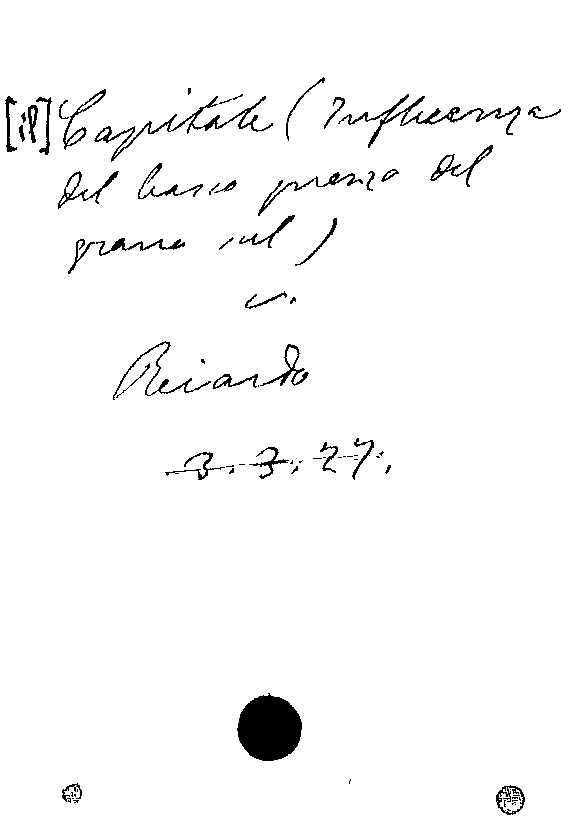 [il] Capitale (Influenza
del basso prezzo del
grano sul)
v.
Ricardo
3.3.27.